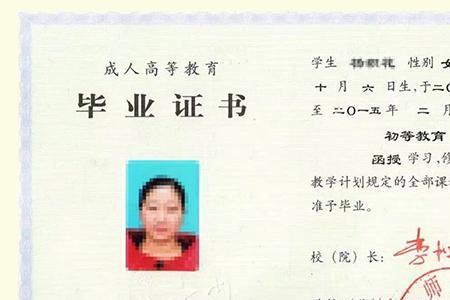 成人高等教育
毕业证书
学生 性别 女
十月 六日生,于二〇
至二〇一五年 二月
初等教育
函授 学习,修
教学计划规定的全部课
准予毕业。
校(院)长:
师